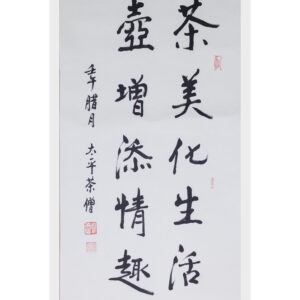 茶美化生活
壺增添情趣
壬午腊月 太平茶僧